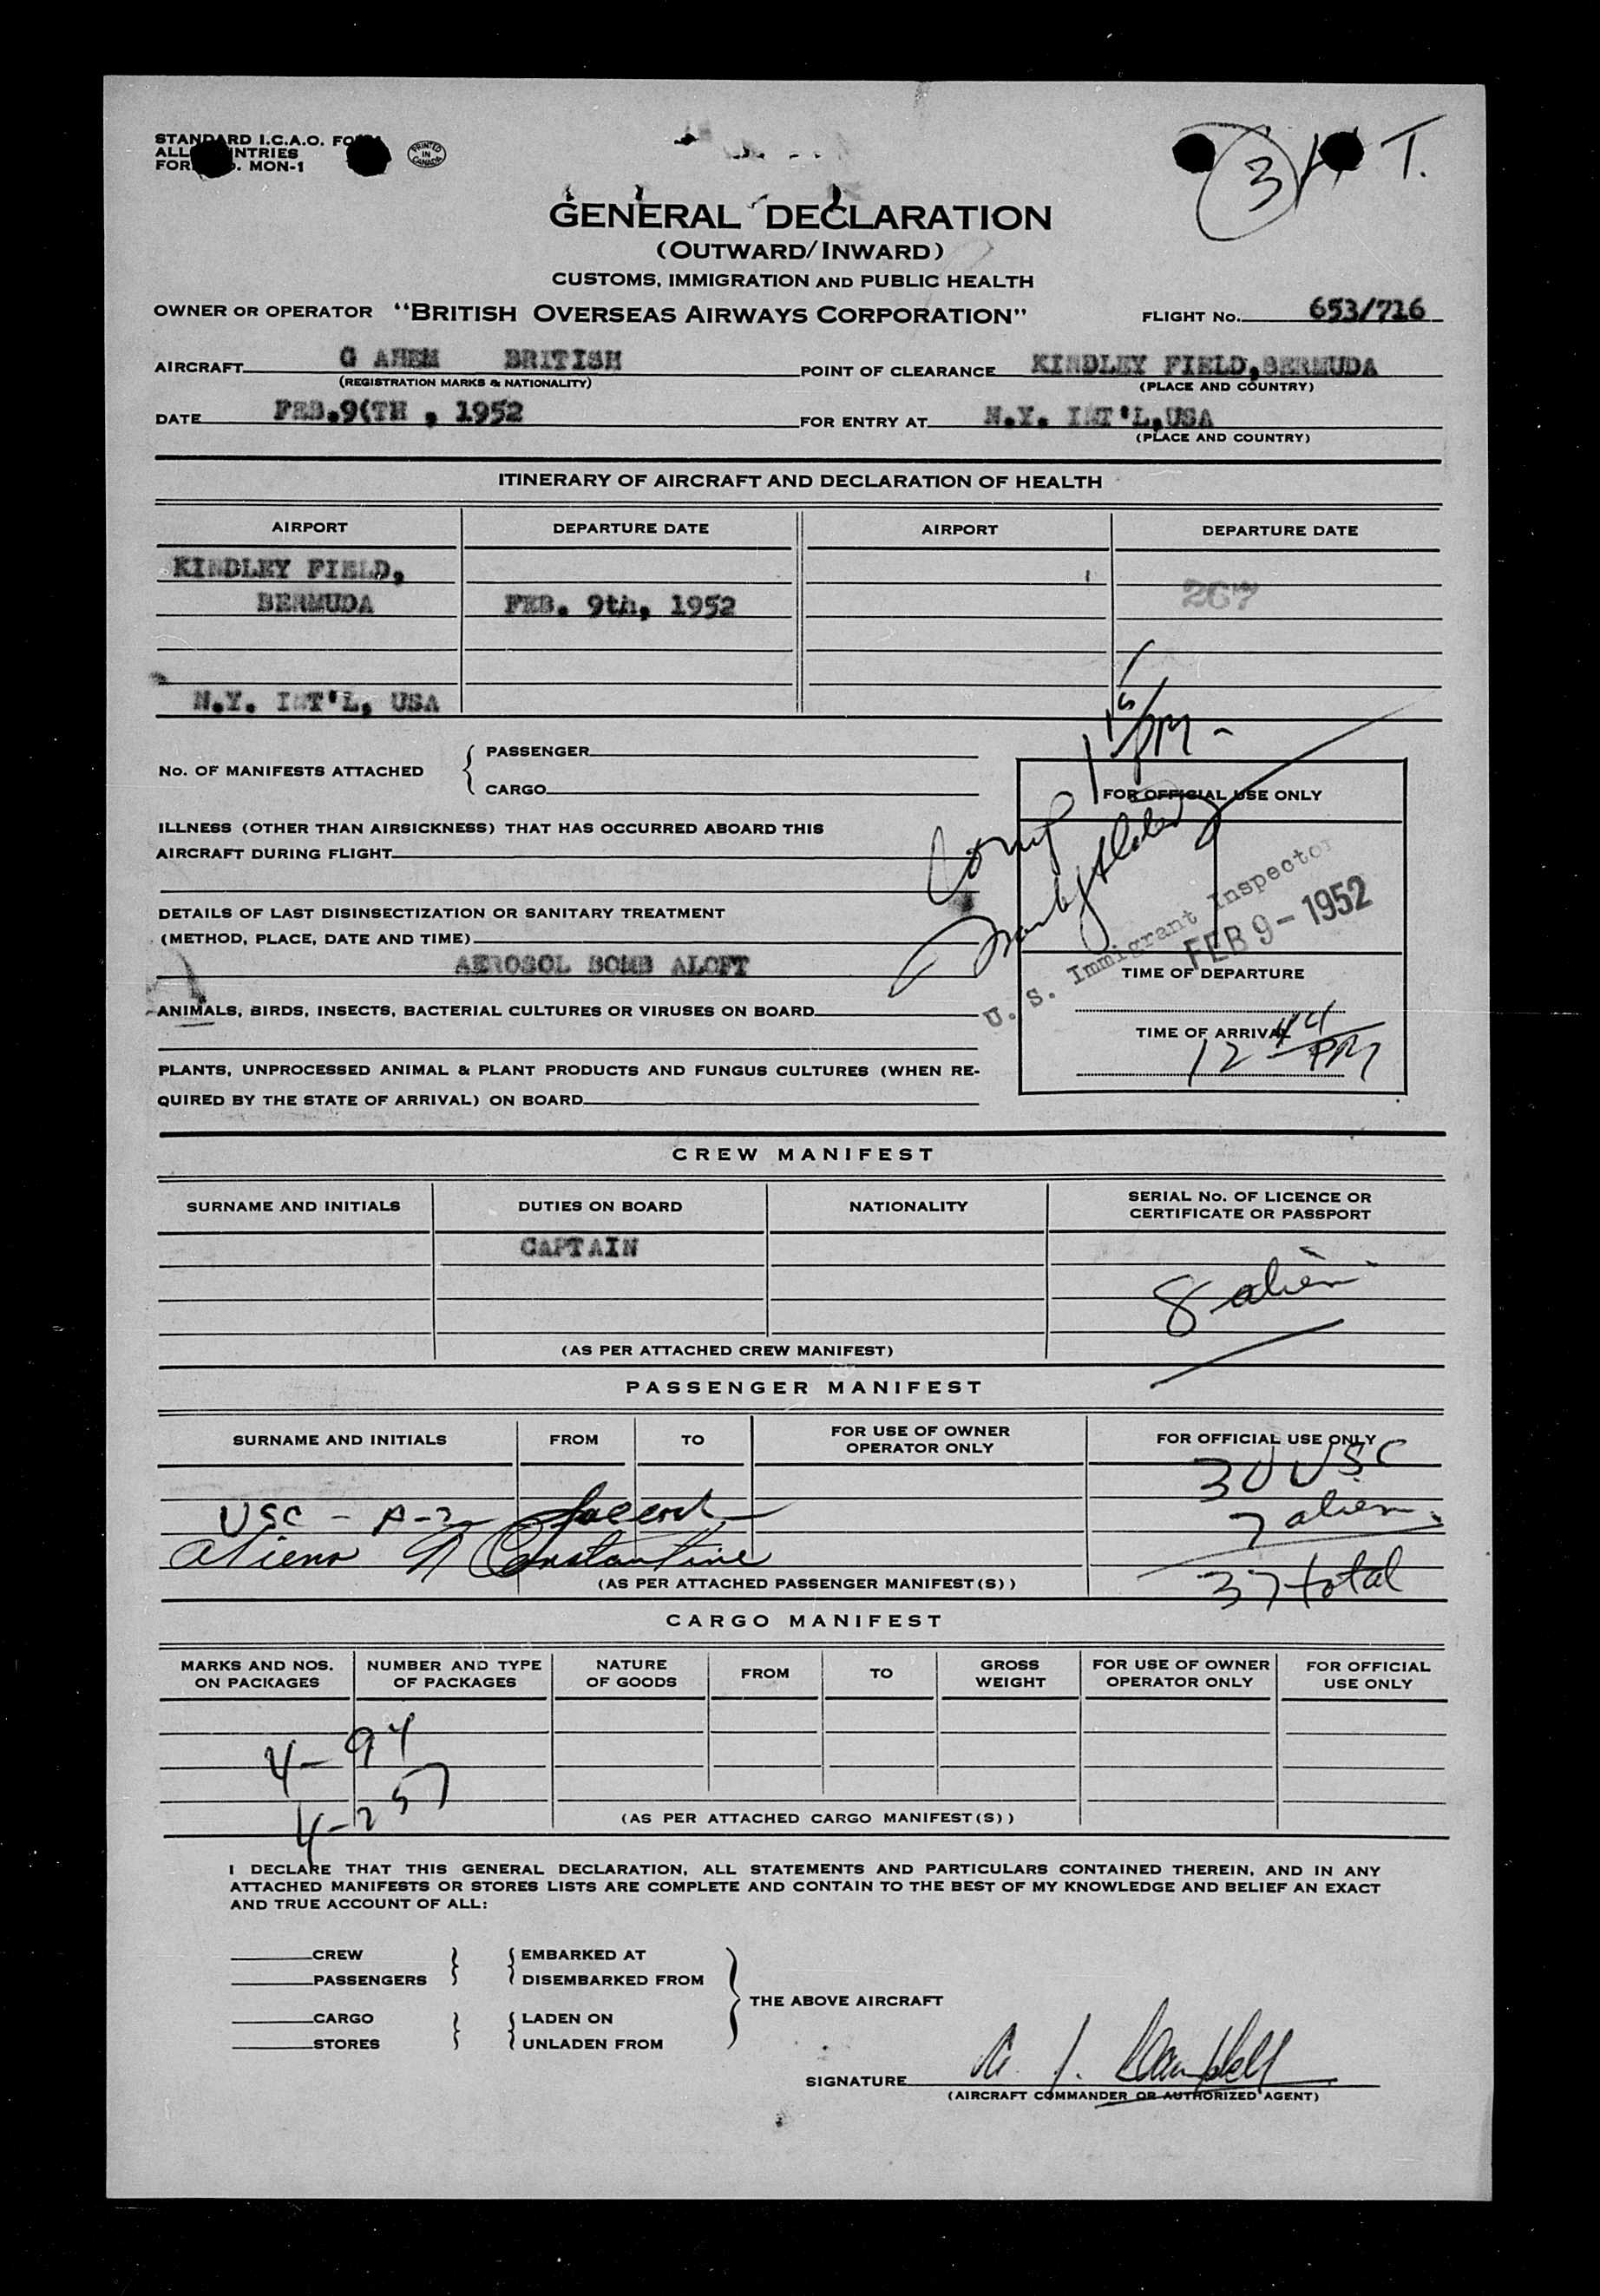 STANDARD I.C.A.O. FORM
ALL COUNTRIES
FORM NO. MON-1
PRINTED IN CANADA
3 T.
GENERAL DECLARATION
(OUTWARD/INWARD)
CUSTOMS, IMMIGRATION AND PUBLIC HEALTH
OWNER OR OPERATOR "BRITISH OVERSEAS AIRWAYS CORPORATION" FLIGHT No. 653/716
AIRCRAFT G AHEM BRITISH POINT OF CLEARANCE KINDLEY FIELD, BERMUDA
(REGISTRATION MARKS & NATIONALITY) (PLACE AND COUNTRY)
DATE FEB.9(TH , 1952 FOR ENTRY AT N.Y. INT'L,USA
(PLACE AND COUNTRY)
ITINERARY OF AIRCRAFT AND DECLARATION OF HEALTH
AIRPORT DEPARTURE DATE AIRPORT DEPARTURE DATE
KINDLEY FIELD,
BERMUDA FEB. 9th, 1952 267
N.Y. INT'L, USA
1 15 PM -
No. OF MANIFESTS ATTACHED { PASSENGER
CARGO
FOR OFFICIAL USE ONLY
Comp
ILLNESS (OTHER THAN AIRSICKNESS) THAT HAS OCCURRED ABOARD THIS
AIRCRAFT DURING FLIGHT
U. S. Immigrant Inspector
FEB 9 - 1952
DETAILS OF LAST DISINSECTIZATION OR SANITARY TREATMENT
(METHOD, PLACE, DATE AND TIME)
AEROSOL BOMB ALOFT
TIME OF DEPARTURE
ANIMALS, BIRDS, INSECTS, BACTERIAL CULTURES OR VIRUSES ON BOARD
TIME OF ARRIVAL
12 44 PM
PLANTS, UNPROCESSED ANIMAL & PLANT PRODUCTS AND FUNGUS CULTURES (WHEN RE-
QUIRED BY THE STATE OF ARRIVAL) ON BOARD
CREW MANIFEST
SURNAME AND INITIALS DUTIES ON BOARD NATIONALITY SERIAL No. OF LICENCE OR CERTIFICATE OR PASSPORT
CAPTAIN
8 alien
(AS PER ATTACHED CREW MANIFEST)
PASSENGER MANIFEST
SURNAME AND INITIALS FROM TO FOR USE OF OWNER OPERATOR ONLY FOR OFFICIAL USE ONLY
30 USC
USC - A-2 7 alien
Aliens Constantine
37 total
(AS PER ATTACHED PASSENGER MANIFEST(S))
CARGO MANIFEST
MARKS AND NOS. ON PACKAGES NUMBER AND TYPE OF PACKAGES NATURE OF GOODS FROM TO GROSS WEIGHT FOR USE OF OWNER OPERATOR ONLY FOR OFFICIAL USE ONLY
4 - 94
4 - 257
(AS PER ATTACHED CARGO MANIFEST(S))
I DECLARE THAT THIS GENERAL DECLARATION, ALL STATEMENTS AND PARTICULARS CONTAINED THEREIN, AND IN ANY
ATTACHED MANIFESTS OR STORES LISTS ARE COMPLETE AND CONTAIN TO THE BEST OF MY KNOWLEDGE AND BELIEF AN EXACT
AND TRUE ACCOUNT OF ALL:
CREW } { EMBARKED AT }
PASSENGERS } { DISEMBARKED FROM
THE ABOVE AIRCRAFT
CARGO } { LADEN ON
STORES } { UNLADEN FROM
SIGNATURE
(AIRCRAFT COMMANDER OR AUTHORIZED AGENT)